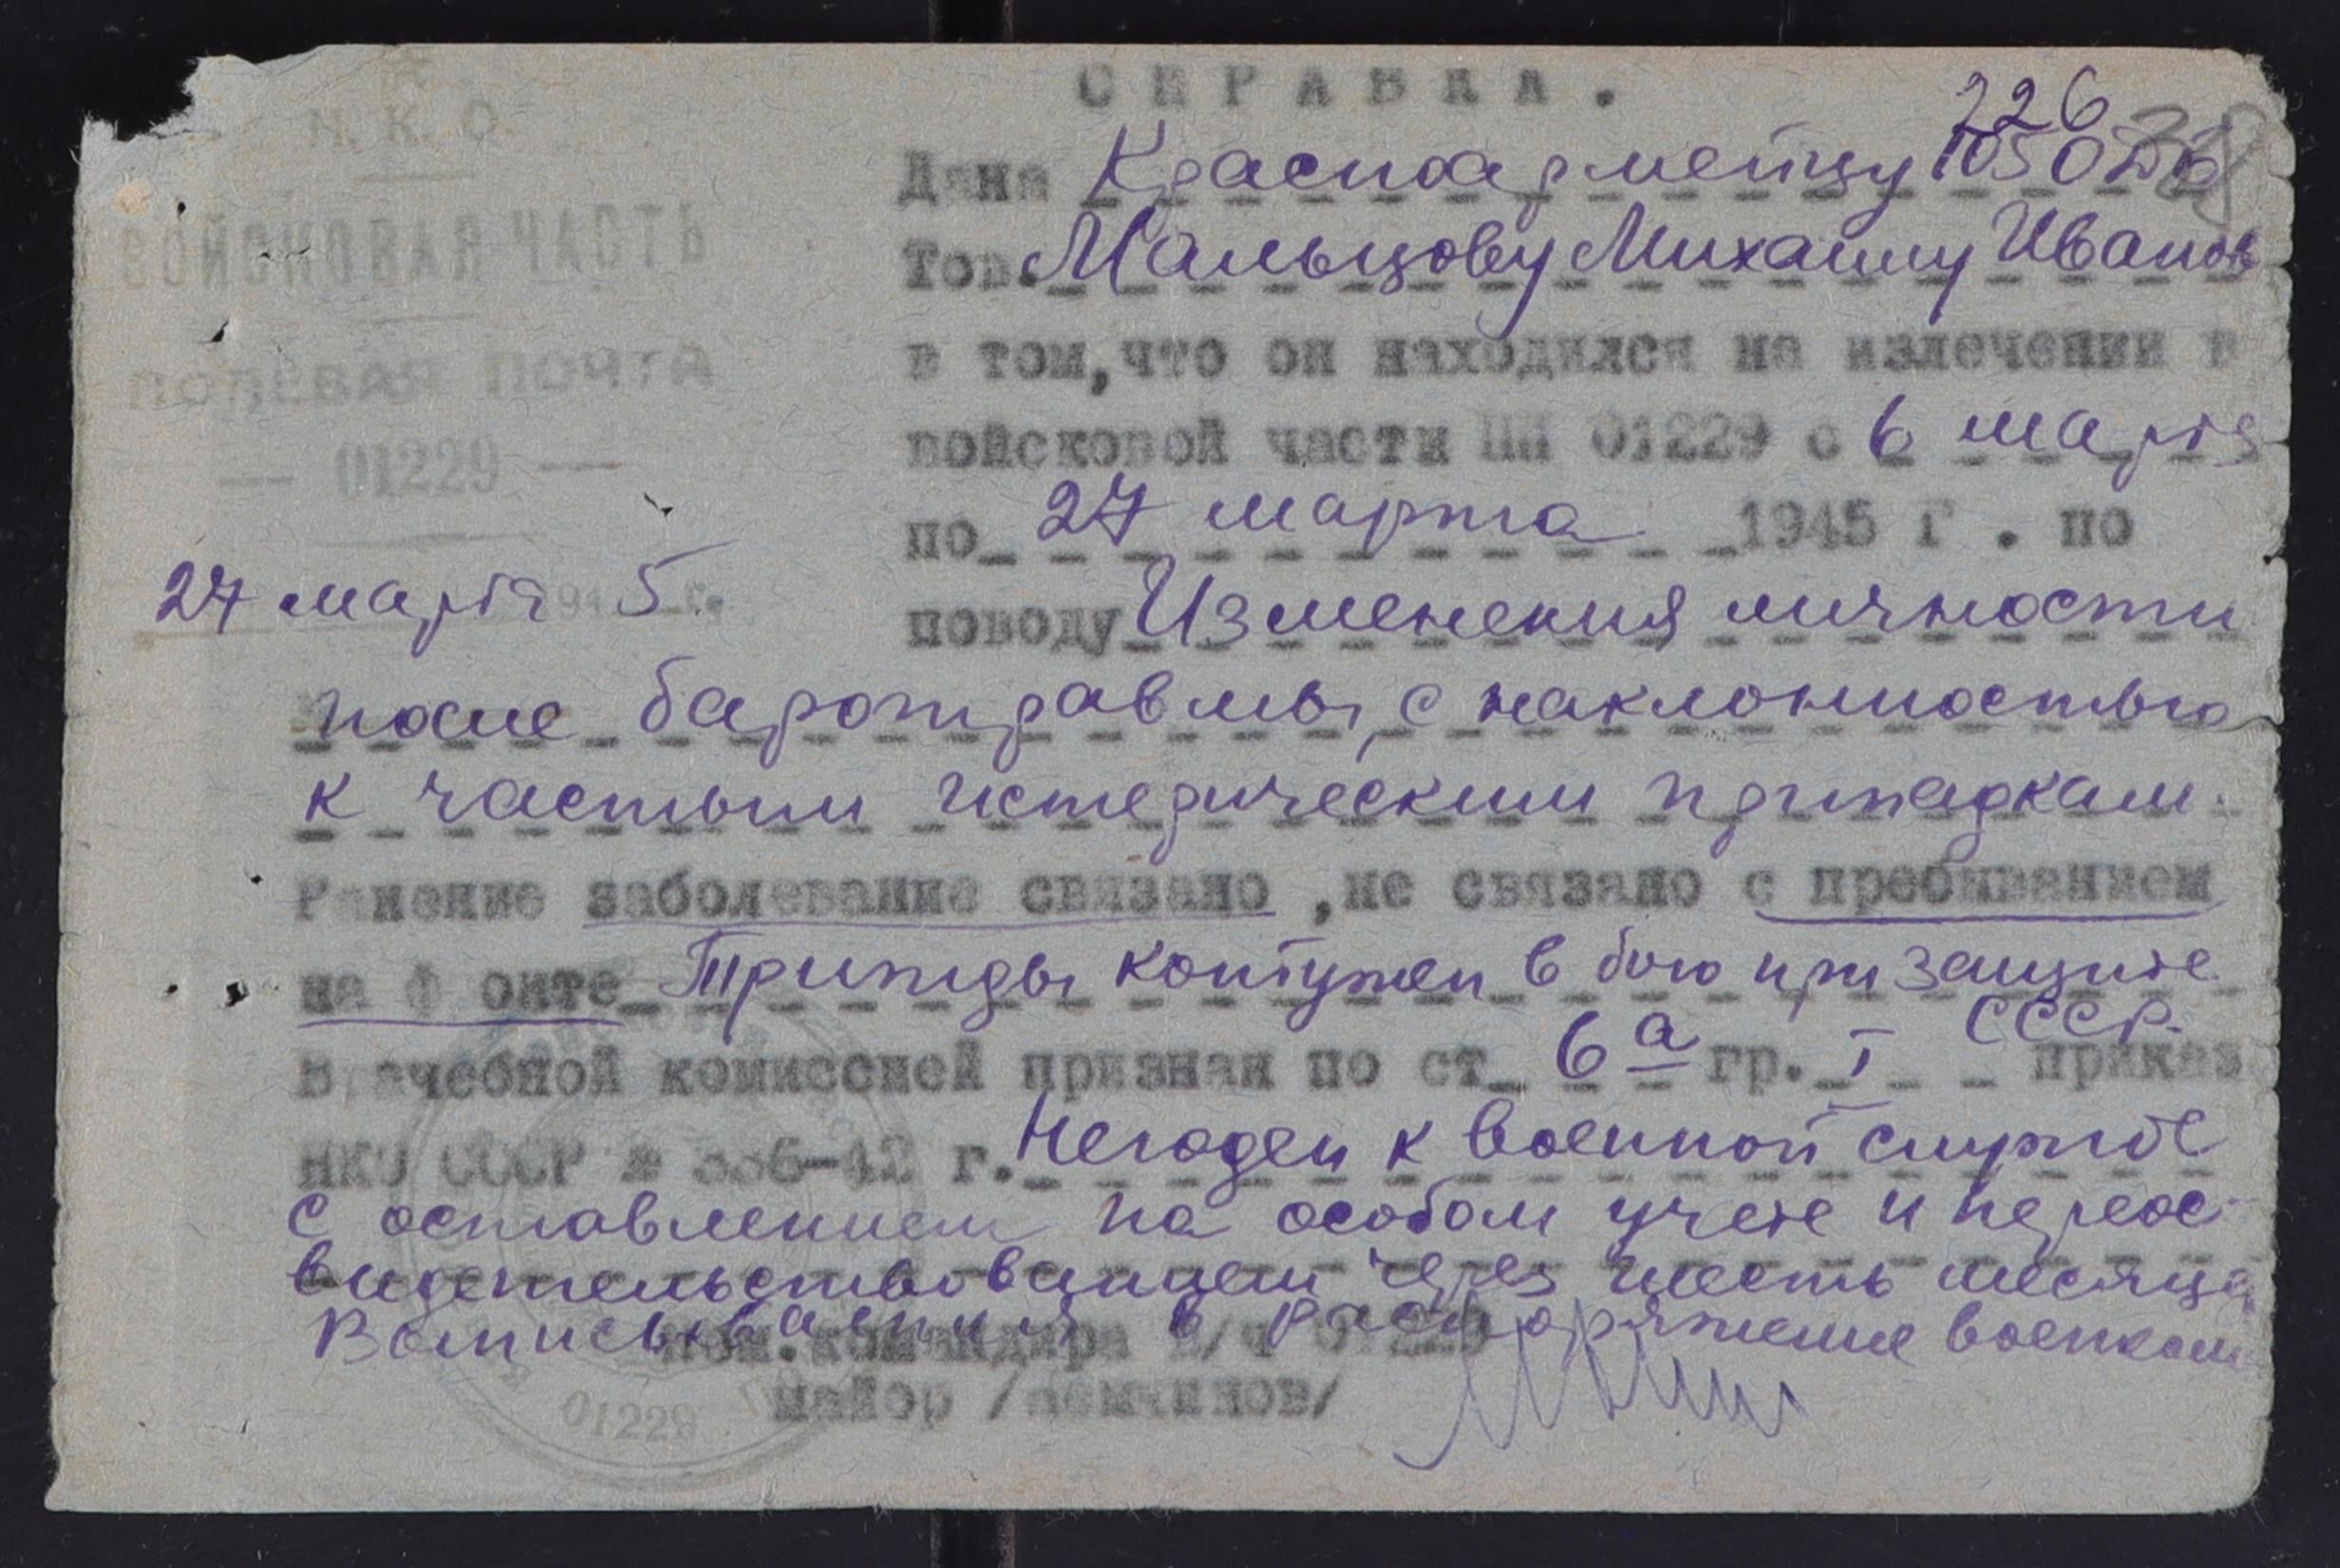 СПРАВКА.
Н. К. О.
ВОЙСКОВАЯ ЧАСТЬ
ПОЛЕВАЯ ПОЧТА
— 01229 —
27 марта 194 5 г.
226
38
Дана Красноармейцу 1050
Тов. Мальцову Михаилу Иванов
в том, что он находился на излечении в
войсковой части ПП 01229 с 6 марта
по 27 марта 1945 Г. по
поводу Изменения личности
после баротравмы, с наклонностью
к частым истерическим припадкам.
Ранение заболевание связано, не связано с пребыванием
на ф онте Трижды контужен в бою при защите
СССР.
Врачебной комиссией признан по ст 6а гр. I приказ
НКО СССР № 336-42 г. Негоден к военной службе
с оставлением на особом учете и переос-
видетельствованием через шесть месяце
Выписывается в распоряжение военком
Пом. командира В/Ч 01229
майор
01229